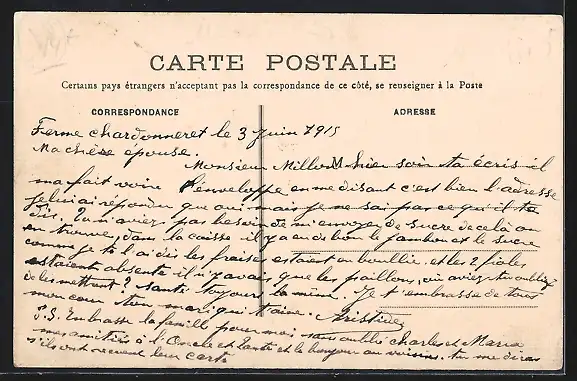 CARTE POSTALE
Certains pays étrangers n'acceptant pas la correspondance de ce côté, se renseigner à la Poste
CORRESPONDANCE
ADRESSE
Ferme chardonneret le 3 Juin 1915
Ma chèse épouse.
Monsieur Millon hier soir ta écris il
ma fait voire l'enveloppe en me disant c'est bien l'adresse
je lui ai répondu que oui mais je ne sai pas ce qu'il te
dis. Tu n'aviez pas besoin de m'envoyez de sucre de cela on
en trouve, dans la caisse il y a eu de bon le jambon et le sucre
comme je te l'ai dis les fraises estaient en bouillie, et les 2 fioles
estaient absente il n'y avais que les paillons, ou aviez-tu oubliez
de les mettent? santé toujour la même. Je t'embrasse de tous
mon cœur ton mari qui t'aime. Aristide
P.S. Embrasse la famille pour moi, sans oublié Charles et Maria
mes amitiés à l'Oncle et Tante et le bonjour au voisins. tu me diras
s'ils ont recevent leur carte